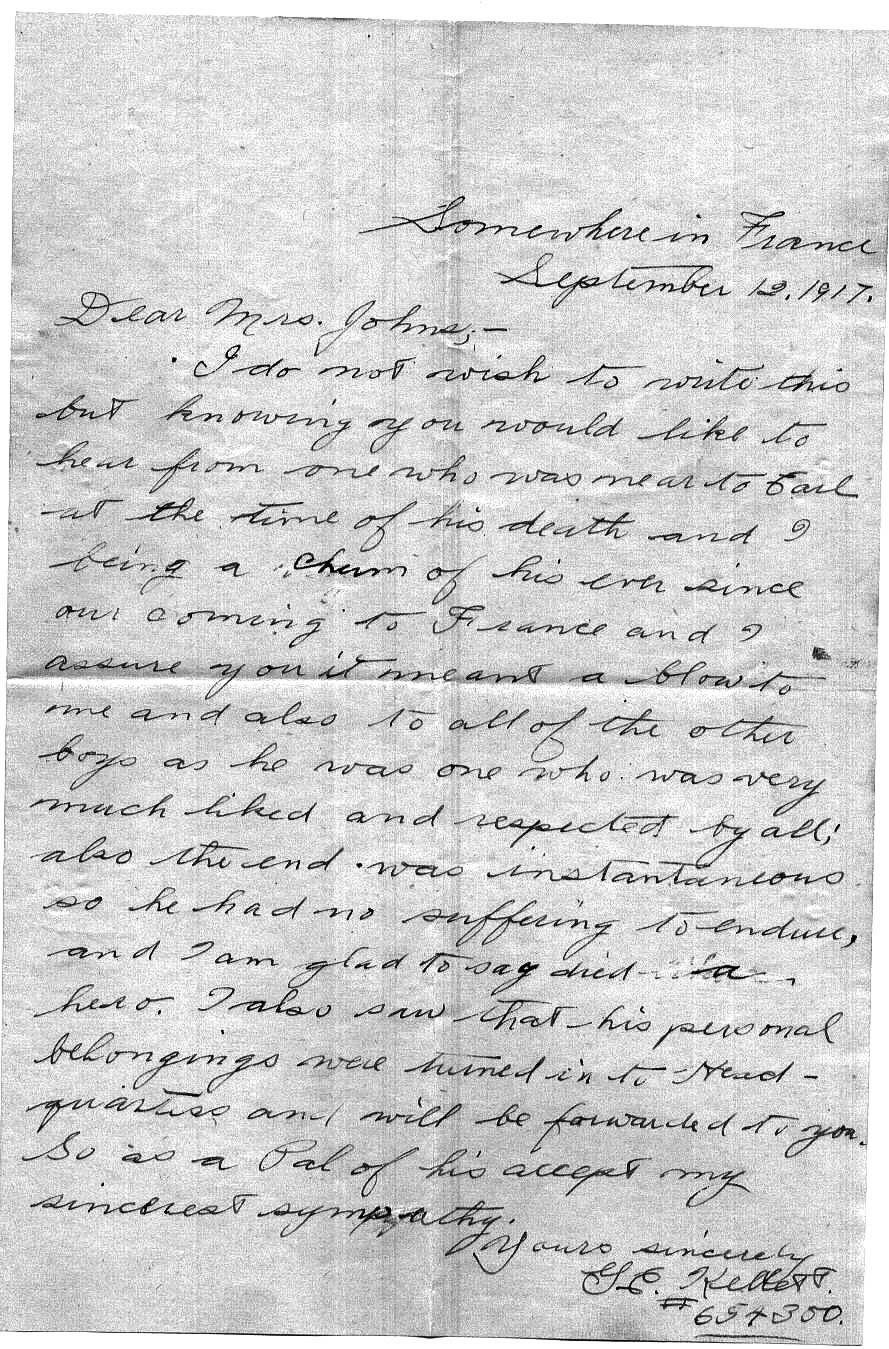 Somewhere in France
September 12, 1917.
Dear Mrs. Johns;—
I do not wish to write this
but knowing you would like to
hear from one who was near to Earl
at the time of his death and I
being a chum of his ever since
our coming to France and I
assure you it meant a blow to
me and also to all of the other
boys as he was one who was very
much liked and respected by all;
also the end was instantaneous
so he had no suffering to endure,
and I am glad to say died a
hero. I also saw that his personal
belongings were turned in to Head-
quarters and will be forwarded to you.
So as a Pal of his accept my
sincerest sympathy.
Yours sincerely
G.E. Kellett.
# 654300.